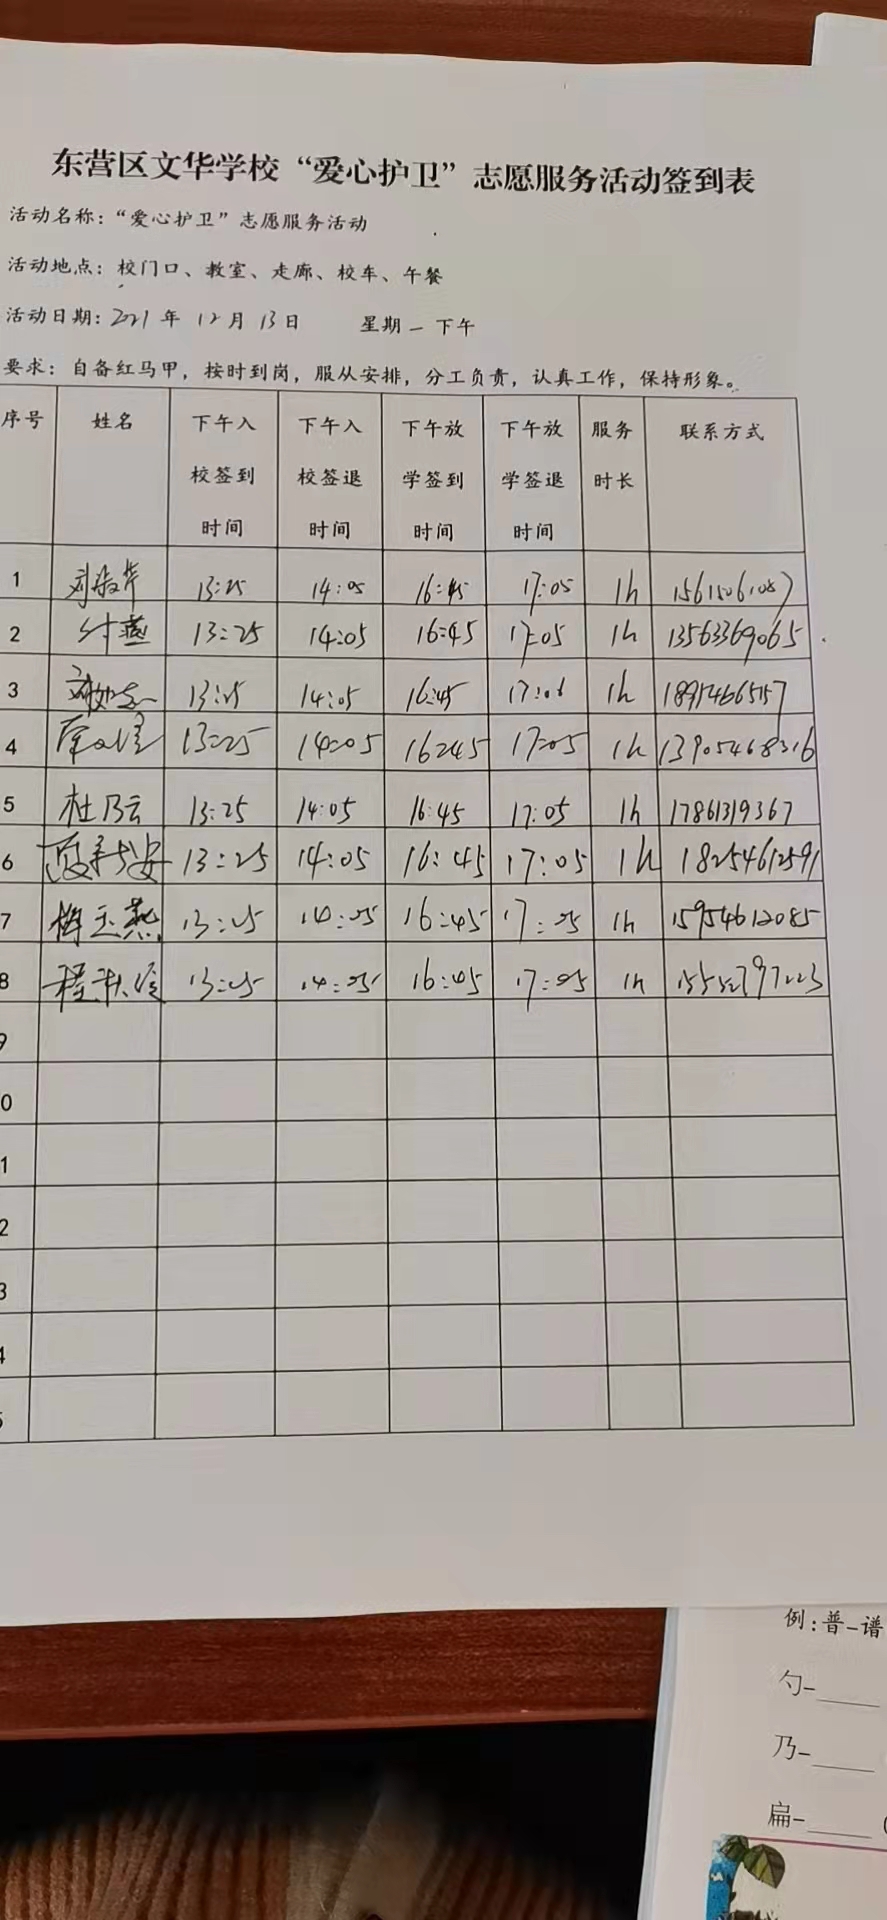 东营区文华学校“爱心护卫”志愿服务活动签到表
活动名称：“爱心护卫”志愿服务活动
活动地点：校门口、教室、走廊、校车、午餐
活动日期：2021年12月13日 星期一下午
要求：自备红马甲，按时到岗，服从安排，分工负责，认真工作，保持形象。
序号 姓名 下午入校签到时间 下午入校签退时间 下午放学签到时间 下午放学签退时间 服务时长 联系方式
1 13:25 14:05 16:45 17:05 1h 15615061087
2 付燕 13:25 14:05 16:45 17:05 1h 13563369065
3 13:25 14:05 16:45 17:06 1h
4 13:25 14:05 16:45 17:05 1h 13905468316
5 杜乃云 13:25 14:05 16:45 17:05 1h 17861319367
6 13:25 14:05 16:45 17:05 1h 18254612591
7 梅玉燕 13:25 14:05 16:45 17:05 1h 15954612085
8 13:25 14:05 16:45 17:05 1h
9
0
1
2
3
4
5
例：普-谱
勺-____
乃-____
扁-____